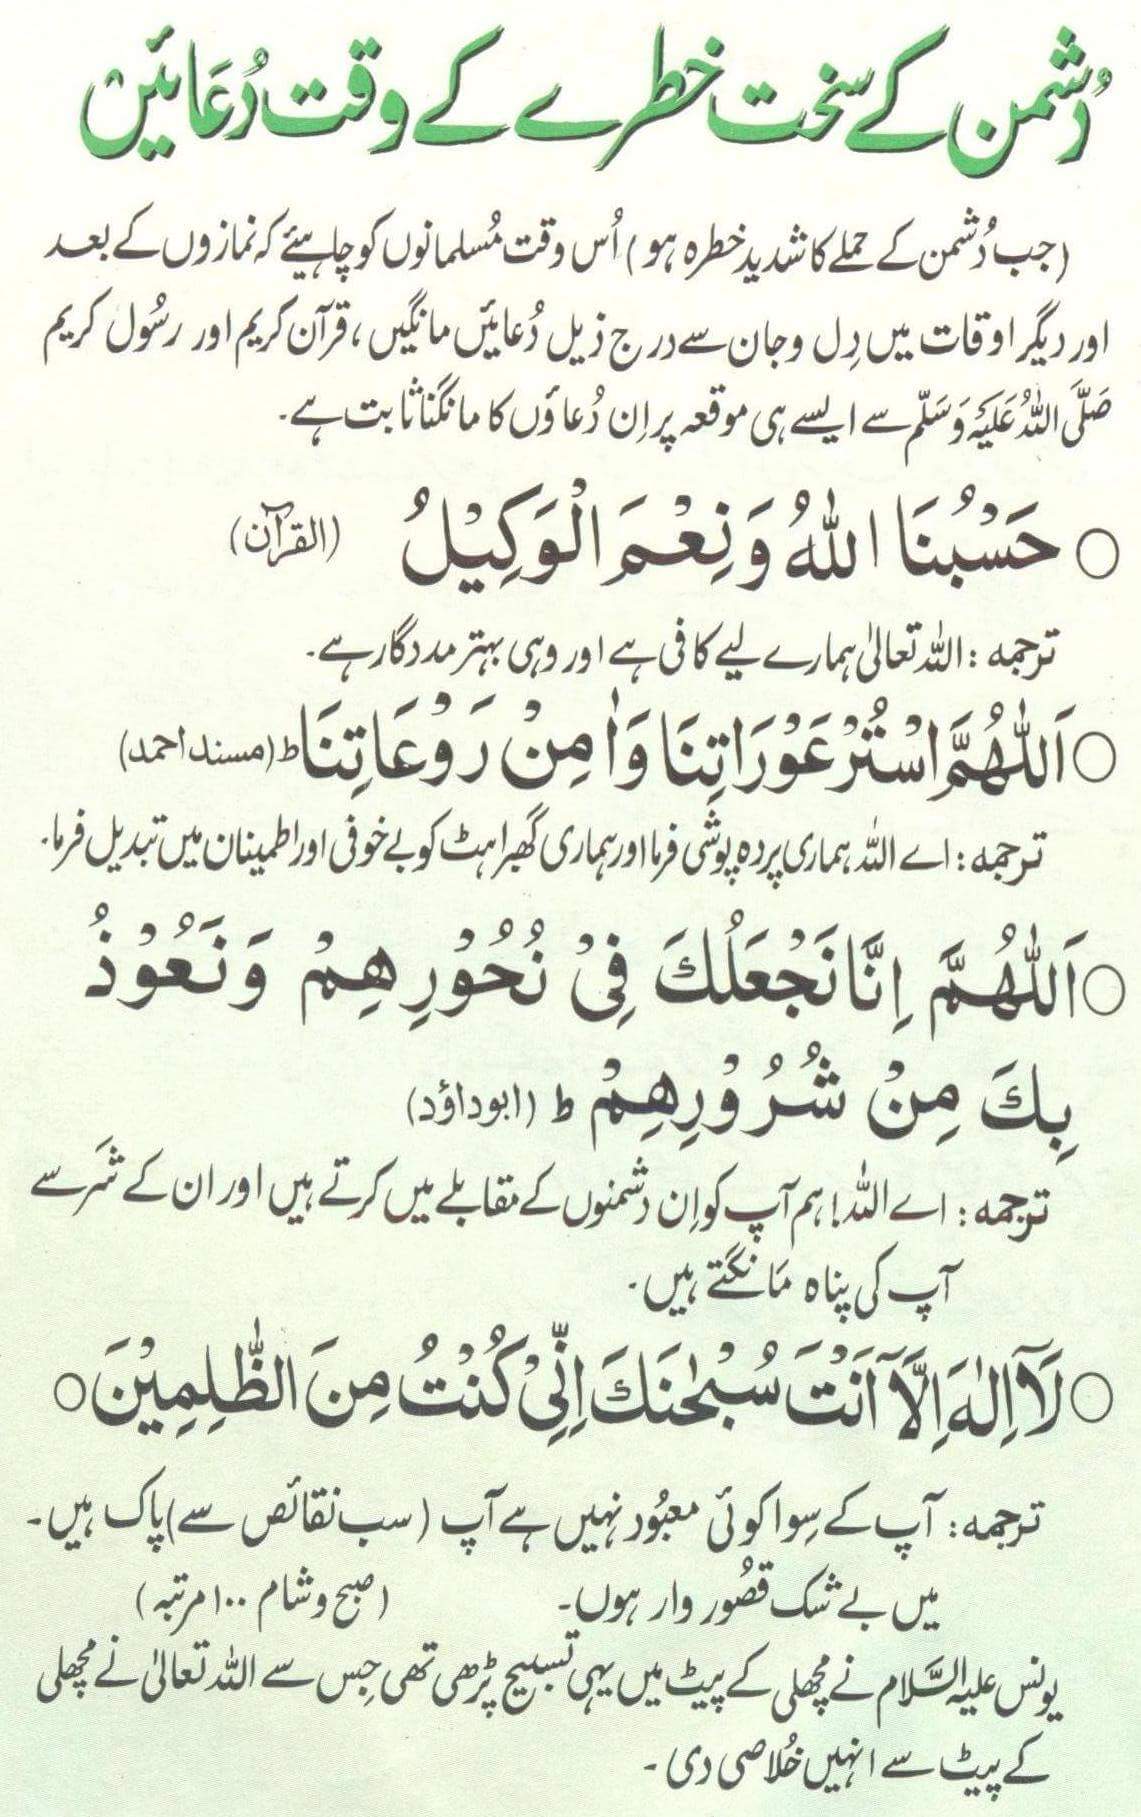 دُشمن کے سخت خطرے کے وقت دُعَائیں
(جب دُشمن کے حملے کا شدید خطرہ ہو) اُس وقت مُسلمانوں کو چاہیئے کہ نمازوں کے بعد
اور دیگر اوقات میں دِل وجان سے درج ذیل دُعائیں مانگیں، قرآن کریم اور رسُول کریم
صَلَّی اللّٰہُ عَلَیْہِ وَسَلَّم سے ایسے ہی موقعہ پر اِن دُعاؤں کا مانگنا ثابت ہے۔
○ حَسْبُنَا اللّٰهُ وَنِعْمَ الْوَكِيْلُ (القرآن)
ترجمہ: اللہ تعالیٰ ہمارے لیے کافی ہے اور وہی بہتر مددگار ہے۔
○ اَللّٰهُمَّ اسْتُرْ عَوْرَاتِنَا وَاٰمِنْ رَوْعَاتِنَا ط (مسند احمد)
ترجمہ: اے اللہ ہماری پردہ پوشی فرما اور ہماری گھبراہٹ کو بے خوفی اور اطمینان میں تبدیل فرما۔
○ اَللّٰهُمَّ اِنَّا نَجْعَلُكَ فِيْ نُحُوْرِهِمْ وَنَعُوْذُ
بِكَ مِنْ شُرُوْرِهِمْ ط (ابوداؤد)
ترجمہ: اے اللہ! ہم آپ کو اِن دشمنوں کے مقابلے میں کرتے ہیں اور ان کے شَر سے
آپ کی پناہ مَانگتے ہیں۔
○ لَآ اِلٰهَ اِلَّآ اَنْتَ سُبْحٰنَكَ اِنِّيْ كُنْتُ مِنَ الظّٰلِمِيْنَ ○
ترجمہ: آپ کے سِوا کوئی معبُود نہیں ہے آپ (سب نقائص سے) پاک ہیں۔
میں بے شک قصُور وار ہوں۔ (صبح و شام ۱۰۰ مرتبہ)
یونس علیہ السَّلام نے مچھلی کے پیٹ میں یہی تسبیح پڑھی تھی جِس سے اللہ تعالیٰ نے مچھلی
کے پیٹ سے انہیں خُلاصی دی۔